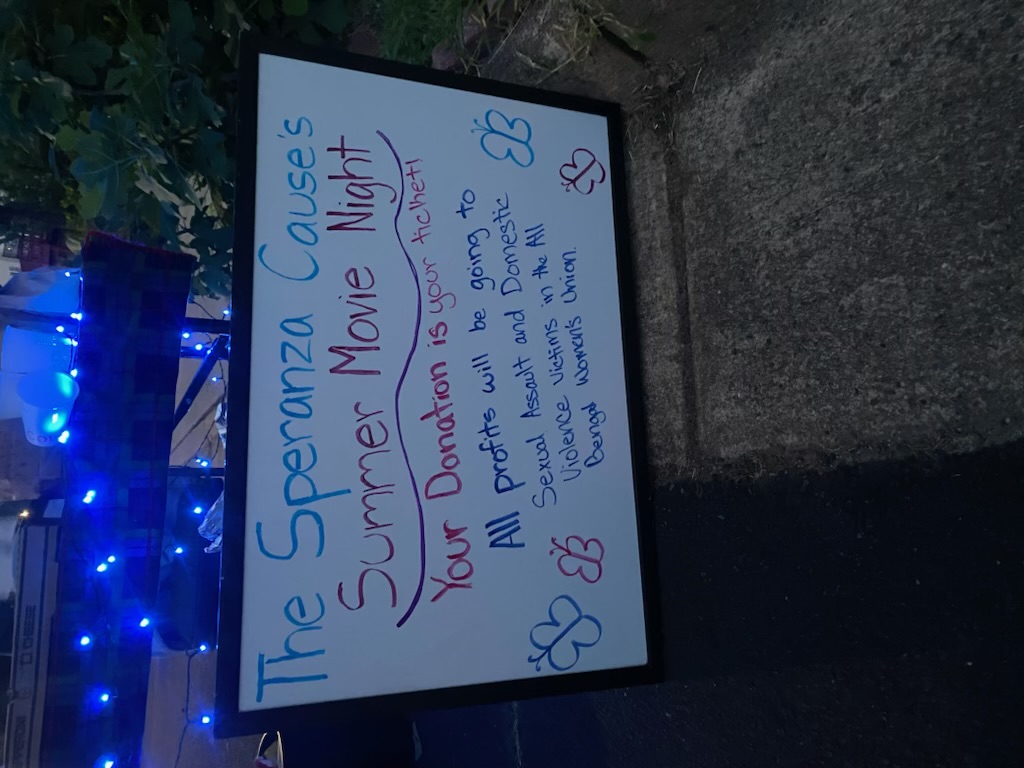 The Speranza Cause's
Summer Movie Night
Your Donation is your ticket!
All profits will be going to
Sexual Assault and Domestic
Violence victims in the All
Bengal Women's Union.